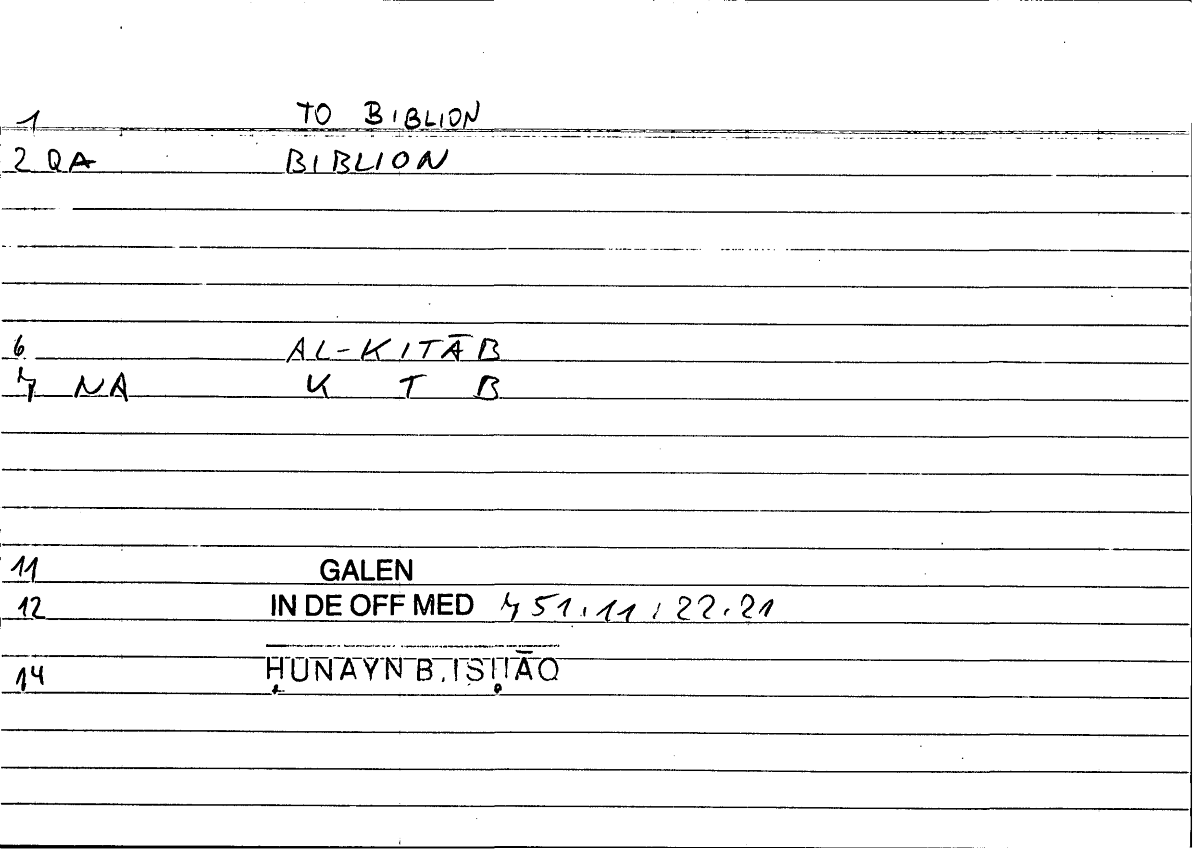 1 TO BIBLION
2 QA BIBLION
6 AL-KITĀB
7 NA K T B
11 GALEN
12 IN DE OFF MED 751,11 / 22.21
14 ḤUNAYN B. ISḤĀQ